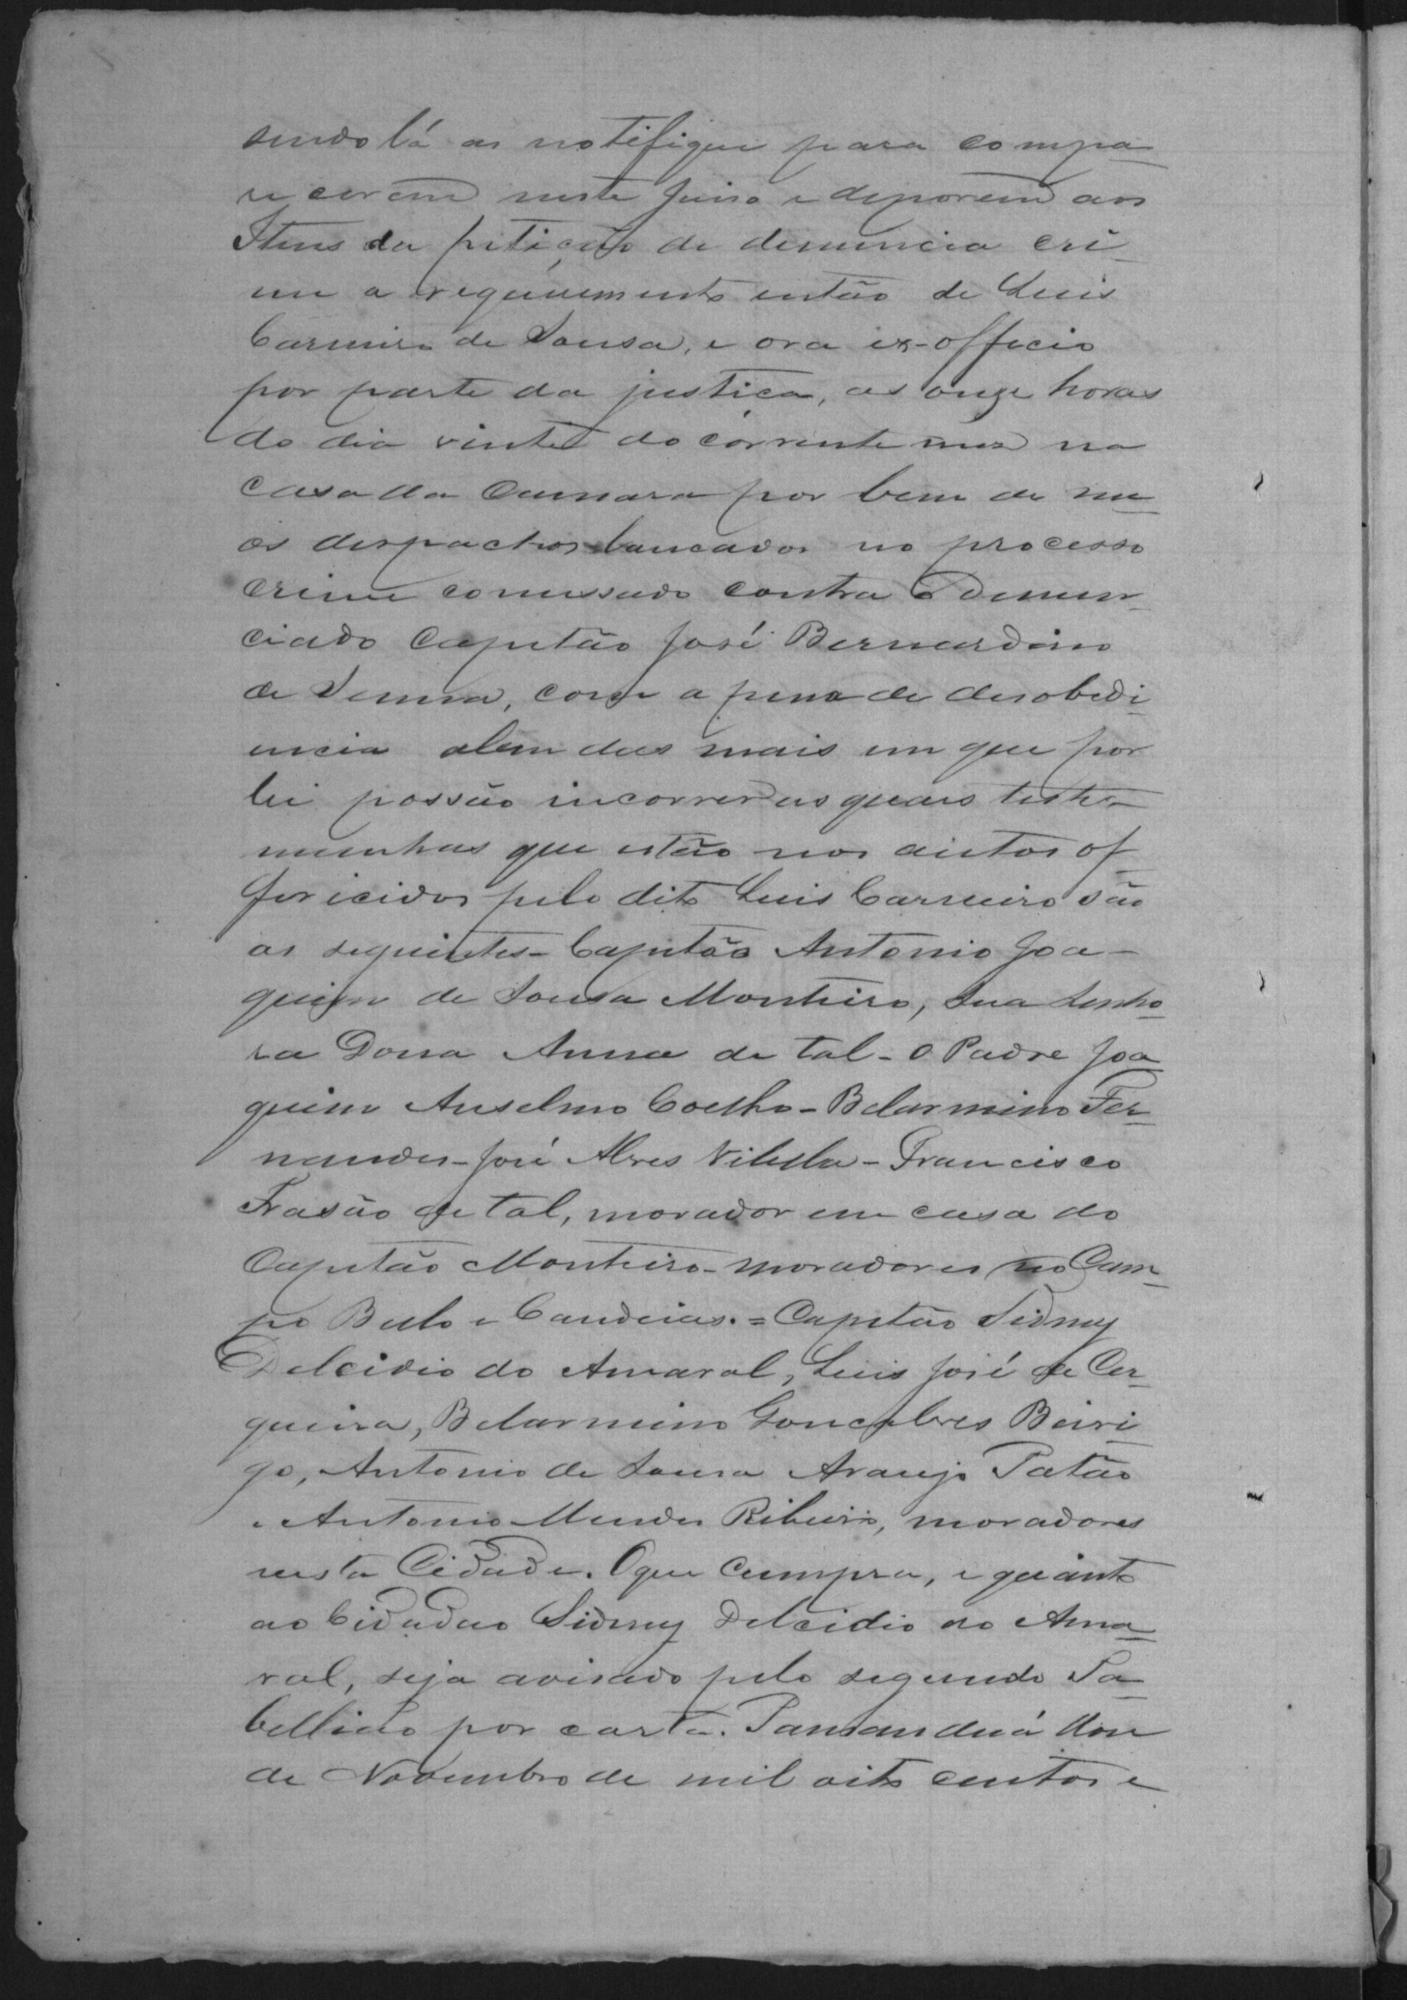 sendo lá as notifique para compa-
recerem neste Juiso e deporem aos
Itens da petição de denuncia cri-
me a requerimento então de Luis
Carneiro de Sousa, e ora ex-officio
por parte da justiça, as onze horas
do dia vinte do corrente mez na
casa da Camara por bem de me-
os despachos lançados no processo
crime comessado contra o Denun-
ciado Capitão José Bernardino
de Senna, com a pena de desobedi-
encia alem das mais em que por
lei possão incorrer as quais teste-
munhas que estão nos autos of-
ferecidos pelo dito Luis Carneiro são
as seguintes - Capitão Antonio Joa-
quim de Sousa Monteiro, Sua Senho-
ra Dona Anna de tal - O Padre Joa-
quim Anselmo Coelho - Belarmino Fer-
nandes - José Alves Vilella - Francisco
Frasão de tal, morador em casa do
Capitão Monteiro - moradores no Cam-
po Bello e Candeias. = Capitão Sidney
Delcidio do Amaral, Luis José de Cer-
queira, Belarmino Gonçalves Beiri-
go, Antonio de Sousa Araujo Patão
e Antonio Mendes Ribeiro, moradores
nesta Cidade. O que cumpra, e quanto
ao Cidadão Sidney Delcidio do Ama-
ral, seja avisado pelo segundo Ta-
bellião por carta. Tamanduá dose
de Novembro de mil oito centos e